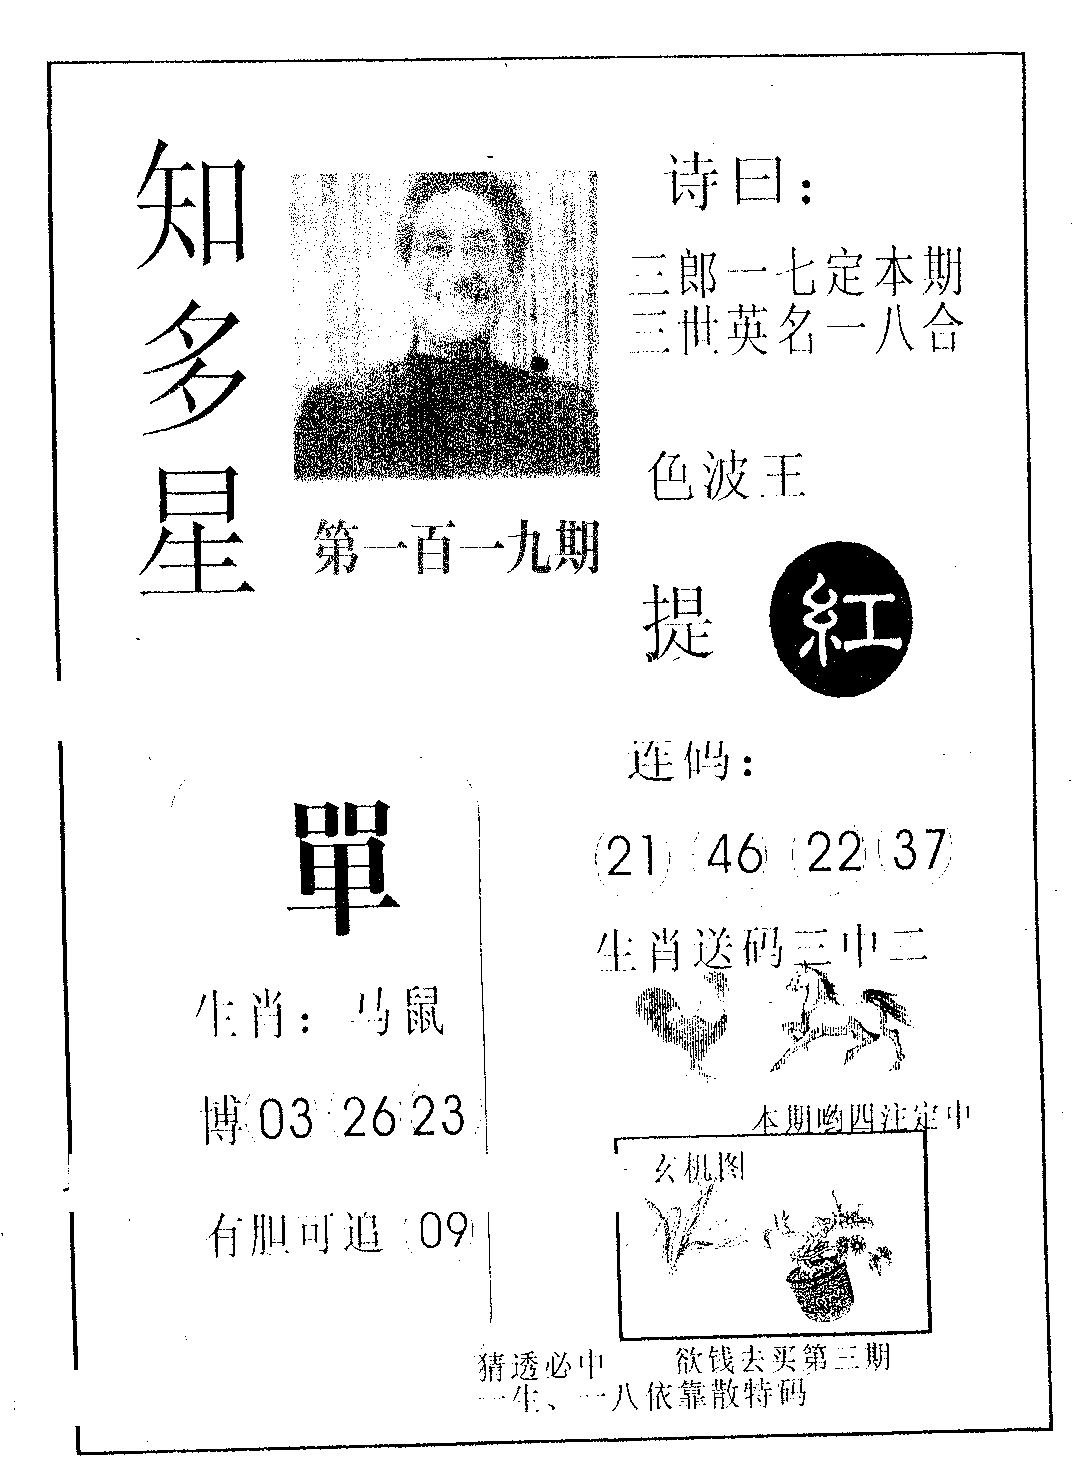 知多星
第一百一十九期
诗曰：
三郎一七定本期
三世英名一八合
色波王
提 紅
連码：
21 46 22 37
生肖送码三中二
單
生肖：马鼠
博 03 26 23
有胆可追 09
本期哟四注定中
玄机图
猜透必中 欲钱去买第三期
一生、一八依靠散特码